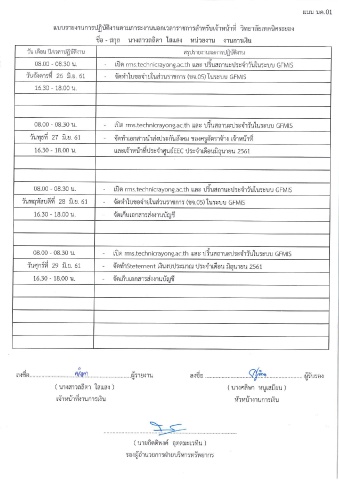 แบบ นค.01
แบบรายงานการปฏิบัติงานตามภาระงานนอกเวลาราชการสำหรับเจ้าหน้าที่ วิทยาลัยเทคนิคระยอง
ชื่อ - สกุล นางสาวถลิตา ใสแสง หน่วยงาน งานการเงิน
วัน เดือน ปี/เวลาปฏิบัติงาน สรุปรายงานผลการปฏิบัติงาน
08.00 - 08.30 น. - เปิด rms.technicrayong.ac.th และ ปริ้นสถานะประจำวันในระบบ GFMIS
วันอังคารที่ 26 มิ.ย. 61 - จัดทำใบขอจ่ายในส่วนราชการ (ขจ.05) ในระบบ GFMIS
16.30 - 18.00 น.
08.00 - 08.30 น. - เปิด rms.technicrayong.ac.th และ ปริ้นสถานะประจำวันในระบบ GFMIS
วันพุธที่ 27 มิ.ย. 61 - จัดทำเอกสารนำส่งประกันสังคม ของครูอัตราจ้าง เจ้าหน้าที่
16.30 - 18.00 น. และเจ้าหน้าที่ประจำศูนย์EEC ประจำเดือนมิถุนายน 2561
08.00 - 08.30 น. - เปิด rms.technicrayong.ac.th และ ปริ้นสถานะประจำวันในระบบ GFMIS
วันพฤหัสบดีที่ 28 มิ.ย. 61 - จัดทำใบขอจ่ายในส่วนราชการ (ขจ.05) ในระบบ GFMIS
16.30 - 18.00 น. - จัดเก็บเอกสารส่งงานบัญชี
08.00 - 08.30 น. - เปิด rms.technicrayong.ac.th และ ปริ้นสถานะประจำวันในระบบ GFMIS
วันศุกร์ที่ 29 มิ.ย. 61 - จัดทำStetement เงินงบประมาณ ประจำเดือน มิถุนายน 2561
16.30 - 18.00 น. - จัดเก็บเอกสารส่งงานบัญชี
ลงชื่อ ผู้รายงาน ลงชื่อ ผู้รับรอง
( นางสาวถลิตา ใสแสง ) ( นางศศิพา หนูเสมียน )
เจ้าหน้าที่งานการเงิน หัวหน้างานการเงิน
( นายกิตติพงศ์ )
รองผู้อำนวยการฝ่ายบริหารทรัพยากร